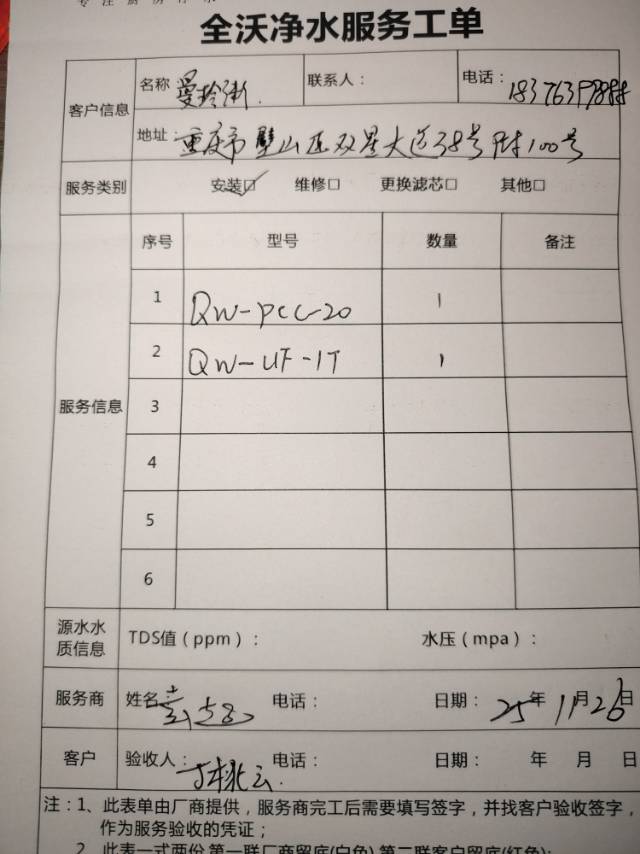 全沃净水服务工单
客户信息
名称
联系人：
电话：
地址：重庆市璧山区双星大道38号附100号
服务类别 安装☑ 维修□ 更换滤芯□ 其他□
服务信息
序号 型号 数量 备注
1 QW-PCC-20 1
2 QW-UF-1T 1
3
4
5
6
源水水质信息 TDS值（ppm）： 水压（mpa）：
服务商 姓名 电话： 日期： 25年11月26日
客户 验收人： 电话： 日期： 年 月 日
注：1、此表单由厂商提供，服务商完工后需要填写签字，并找客户验收签字，
作为服务验收的凭证；
2、此表一式两份,第一联厂商留底(白色),第二联客户留底(红色);